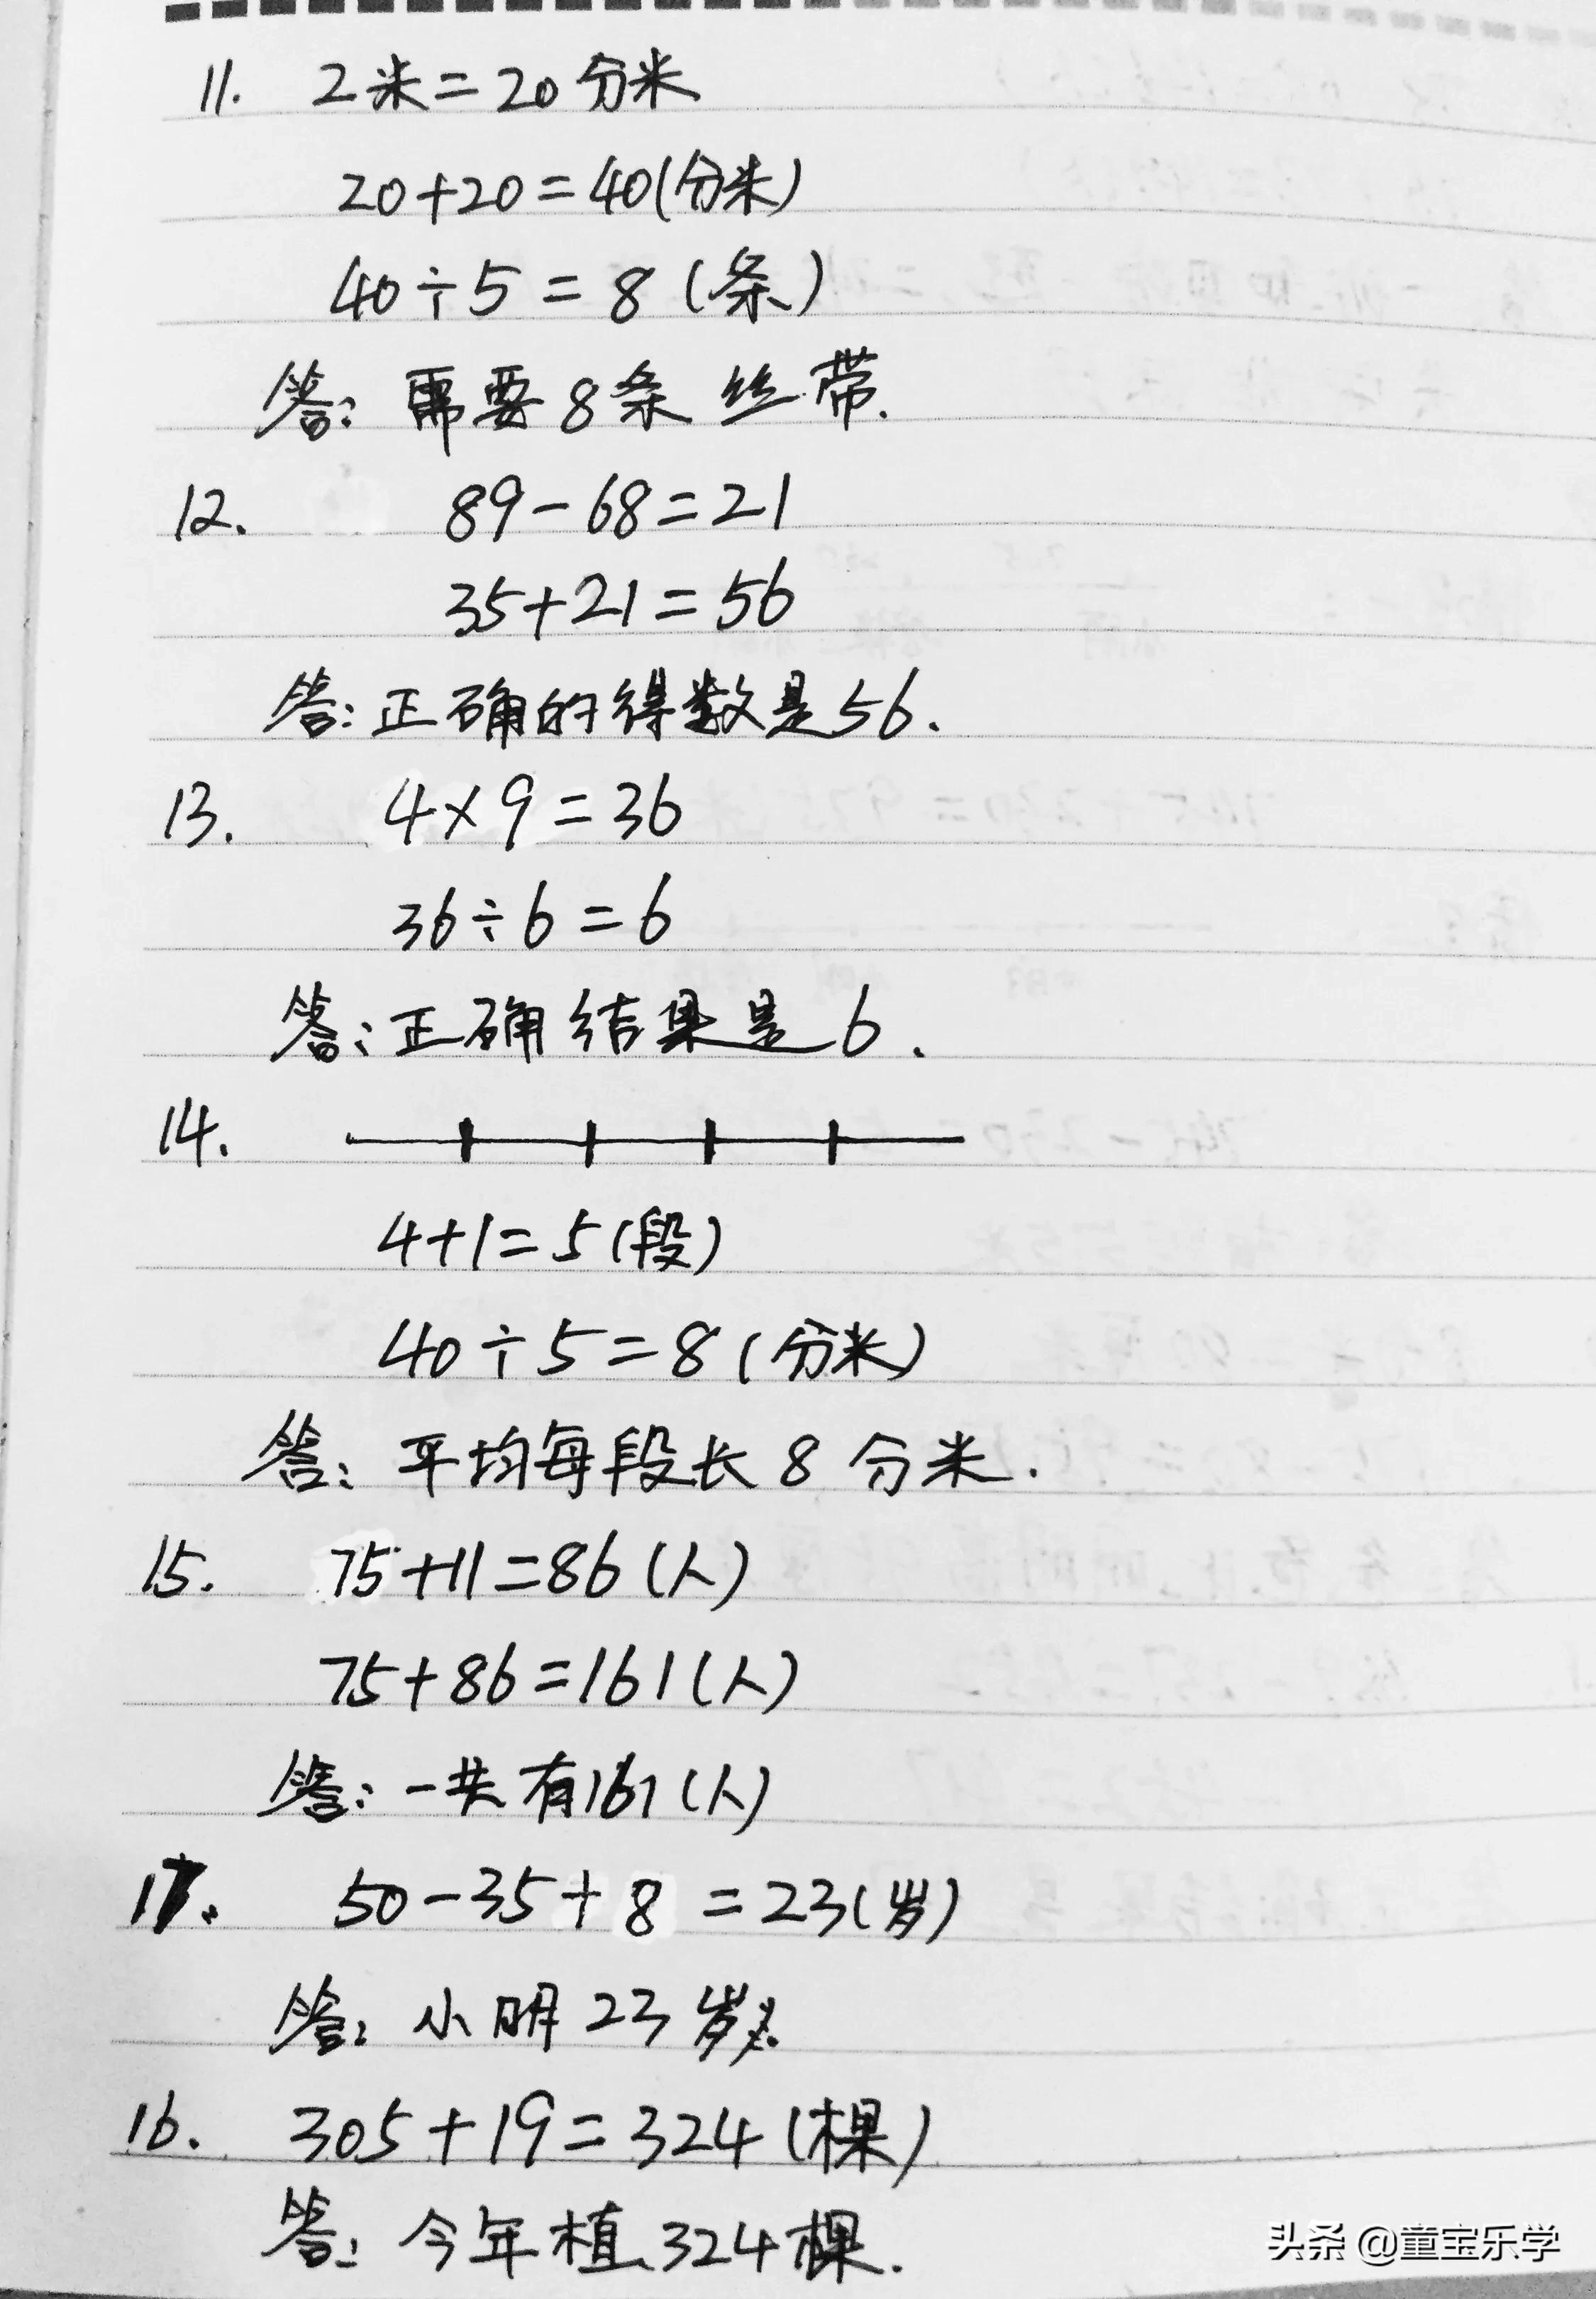 11. 2米=20分米
20+20=40(分米)
40÷5=8(条)
答:需要8条丝带.
12. 89-68=21
35+21=56
答:正确的得数是56.
13. 4×9=36
36÷6=6
答:正确结果是6.
14.
4+1=5(段)
40÷5=8(分米)
答:平均每段长8分米.
15. 75+11=86(人)
75+86=161(人)
答:一共有161(人)
17. 50-35+8=23(岁)
答:小明23岁.
16. 305+19=324(棵)
答:今年植324棵.
头条@童宝乐学